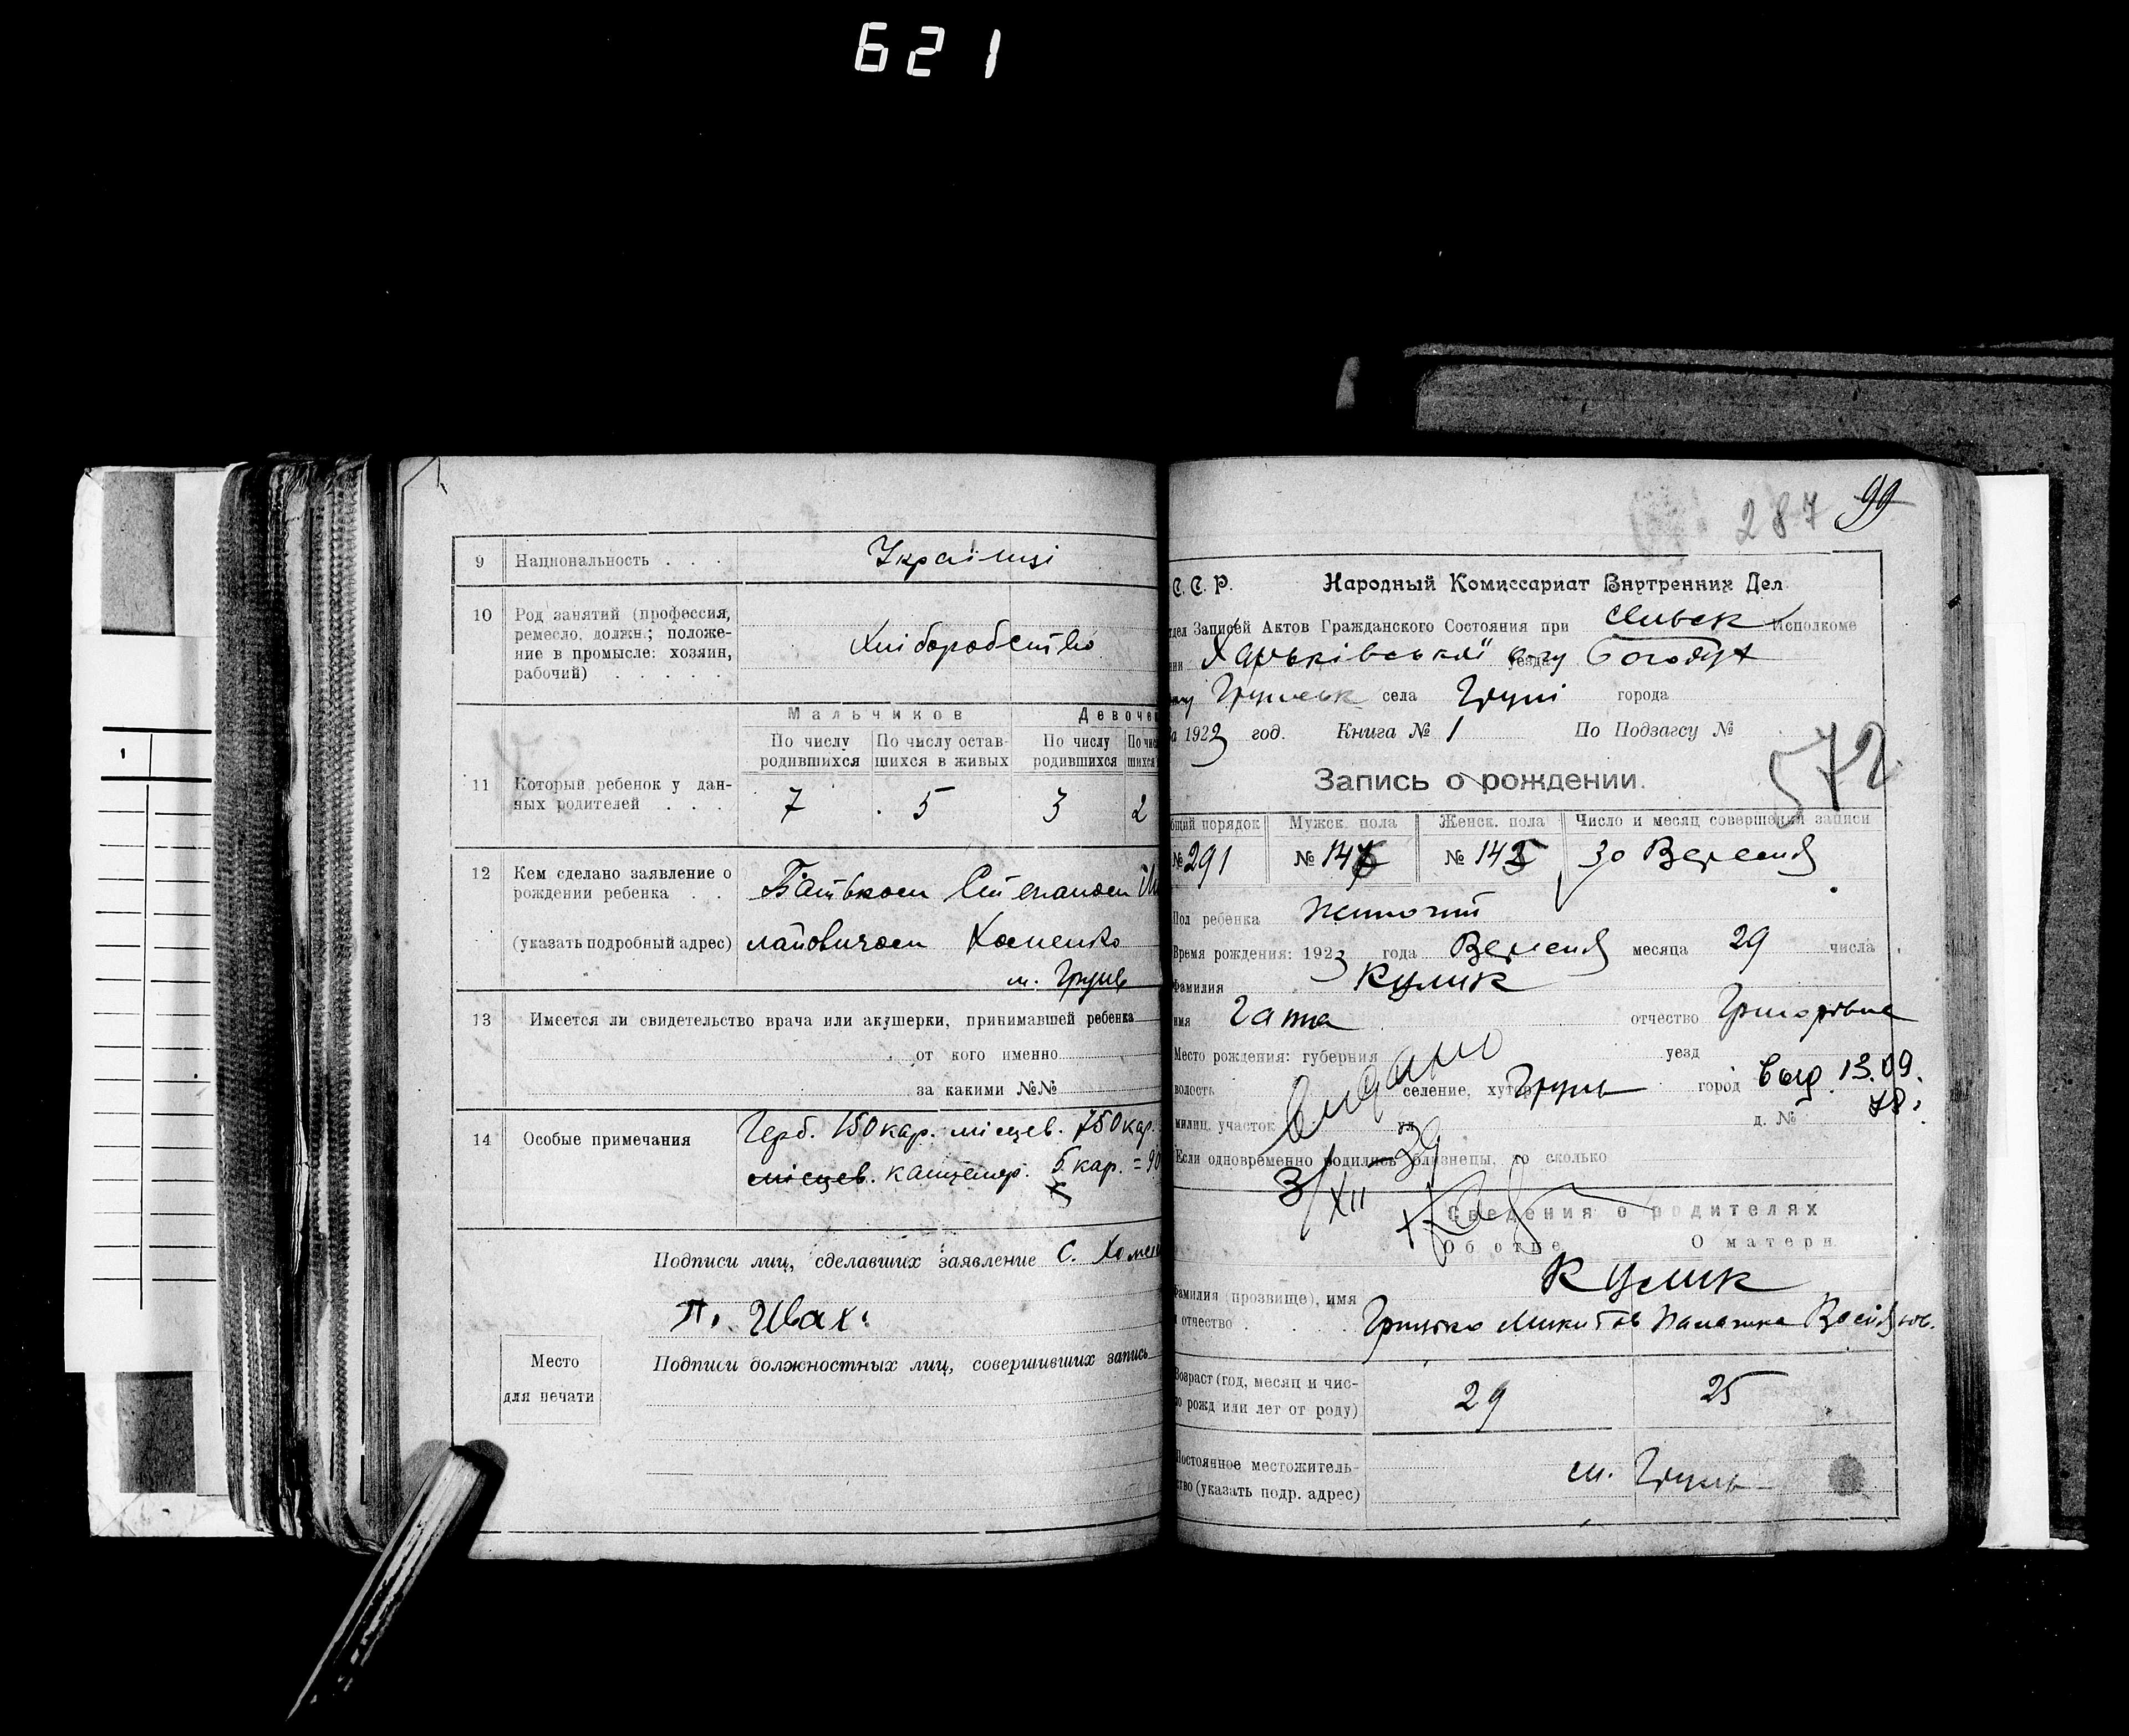 621
9 Национальность . . . Українці
10 Род занятий (профессия, ремесло, должн.; положе-
ние в промысле: хозяин,
рабочий) . . . . . Хліборобство
Мальчиков Девоче
По числу родившихся По числу остав-шихся в живых По числу родившихся По чис шихся
11 Который ребенок у дан-
ных родителей . . . 7 5 3 2
12 Кем сделано заявление о
рождении ребенка . . Батьком Степаном
(указать подробный адрес) лайовичом Хоменко
м. Грунь
13 Имеется ли свидетельство врача или акушерки, принимавшей ребенка
от кого именно
за какими №№
14 Особые примечания Герб. 150 кар. місцев. 750 кар.
місцев. канцеляр. 5 кар. = 90
Подписи лиц, сделавших заявление С. Хомен
П. Швах
Место
для печати
Подписи должностных лиц, совершивших запись
287 99
С. С. Р. Народный Комиссариат Внутренних Дел
тдел Записей Актов Гражданского Состояния при Исполкоме
нии Харьківської уезда Богодух
Грунськ села Груні города
а 1923 год. Книга № 1 По Подзагсу №
572
Запись о рождении.
бщий порядок Мужск. пола Женск. пола Число и месяц совершения записи
№ 291 № 14 № 14 30 Вересня
Пол ребенка жиночий
Время рождения: 1923 года Вересня месяца 29 числа
Фамилия Кулик
имя Ганна отчество Григорівна
Место рождения: губерния уезд
волость селение, хутор Грунь город выд. 13.09.
78.
милиц. участок ул. д. №
видано
Если одновременно родились близнецы, то сколько
3/XII 39
Сведения о родителях
Об отце О матери
Кулик
Фамилия (прозвище), имя
и отчество . . . Грицько Микитов Палажка Васильов.
Возраст (год, месяц и чис-
ло рожд или лет от роду) 29 25
Постоянное местожитель-
ство (указать подр. адрес) м. Грунь